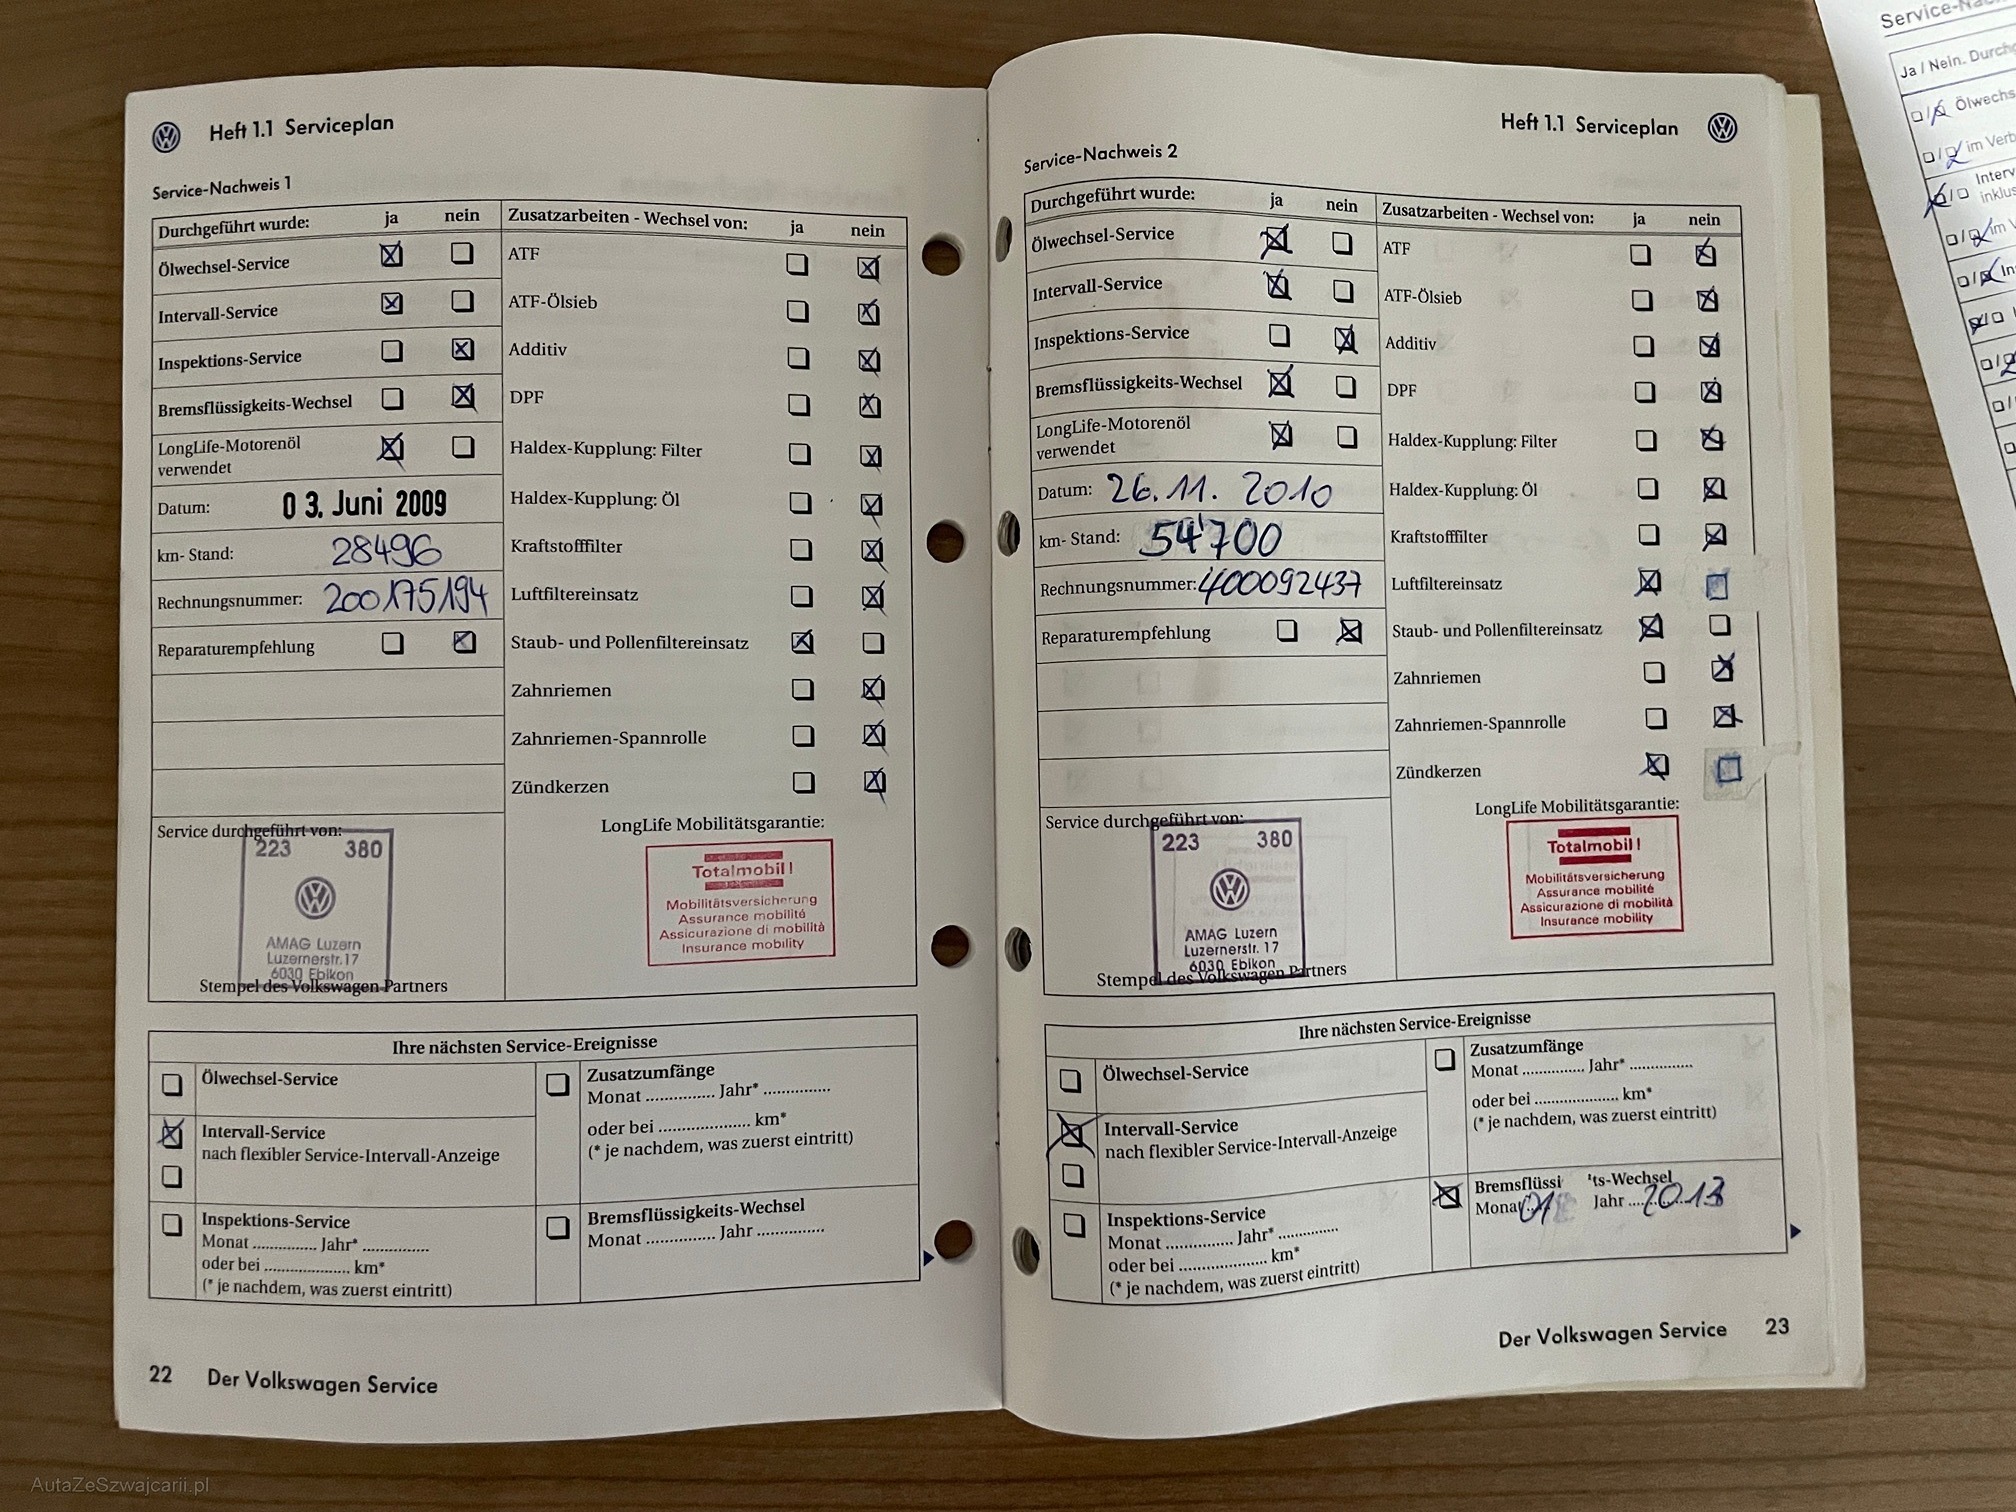 Heft 1.1 Serviceplan
Service-Nachweis 1
Durchgeführt wurde: ja nein
Ölwechsel-Service
Intervall-Service
Inspektions-Service
Bremsflüssigkeits-Wechsel
LongLife-Motorenöl
verwendet
Datum: 03. Juni 2009
km- Stand: 28496
Rechnungsnummer: 200175194
Reparaturempfehlung
Zusatzarbeiten - Wechsel von: ja nein
ATF
ATF-Ölsieb
Additiv
DPF
Haldex-Kupplung: Filter
Haldex-Kupplung: Öl
Kraftstofffilter
Luftfiltereinsatz
Staub- und Pollenfiltereinsatz
Zahnriemen
Zahnriemen-Spannrolle
Zündkerzen
Service durchgeführt von:
223 380
AMAG Luzern
Luzernerstr. 17
6030 Ebikon
Stempel des Volkswagen Partners
LongLife Mobilitätsgarantie:
Totalmobil!
Mobilitätsversicherung
Assurance mobilité
Assicurazione di mobilità
Insurance mobility
Ihre nächsten Service-Ereignisse
Ölwechsel-Service
Intervall-Service
nach flexibler Service-Intervall-Anzeige
Inspektions-Service
Monat .............. Jahr* ..............
oder bei ................... km*
(* je nachdem, was zuerst eintritt)
Zusatzumfänge
Monat .............. Jahr* ..............
oder bei ................... km*
(* je nachdem, was zuerst eintritt)
Bremsflüssigkeits-Wechsel
Monat .............. Jahr ..............
22 Der Volkswagen Service
Heft 1.1 Serviceplan
Service-Nachweis 2
Durchgeführt wurde: ja nein
Ölwechsel-Service
Intervall-Service
Inspektions-Service
Bremsflüssigkeits-Wechsel
LongLife-Motorenöl
verwendet
Datum: 26.11. 2010
km- Stand: 54'700
Rechnungsnummer: 400092437
Reparaturempfehlung
Zusatzarbeiten - Wechsel von: ja nein
ATF
ATF-Ölsieb
Additiv
DPF
Haldex-Kupplung: Filter
Haldex-Kupplung: Öl
Kraftstofffilter
Luftfiltereinsatz
Staub- und Pollenfiltereinsatz
Zahnriemen
Zahnriemen-Spannrolle
Zündkerzen
Service durchgeführt von:
223 380
AMAG Luzern
Luzernerstr. 17
6030 Ebikon
Stempel des Volkswagen Partners
LongLife Mobilitätsgarantie:
Totalmobil!
Mobilitätsversicherung
Assurance mobilité
Assicurazione di mobilità
Insurance mobility
Ihre nächsten Service-Ereignisse
Ölwechsel-Service
Intervall-Service
nach flexibler Service-Intervall-Anzeige
Inspektions-Service
Monat .............. Jahr* ..............
oder bei ................... km*
(* je nachdem, was zuerst eintritt)
Zusatzumfänge
Monat .............. Jahr* ..............
oder bei ................... km*
(* je nachdem, was zuerst eintritt)
Bremsflüssi 'ts-Wechsel
Monat 01 Jahr
Der Volkswagen Service 23
Ja / Nein.
im
AutaZeSzwajcarii.pl